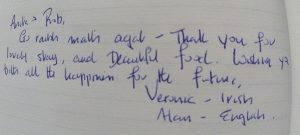 Anita & Rob,
Go raibh maith agat - Thank you for
lovely stay, and Beautiful food. Wishing ya
both all the happiness for the future,
Veronic - Irish
Alan - English.